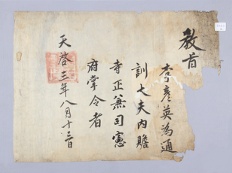 教旨
李彦英為通
訓大夫内贍
寺正兼司憲
府掌令者
天啓三年八月十三日